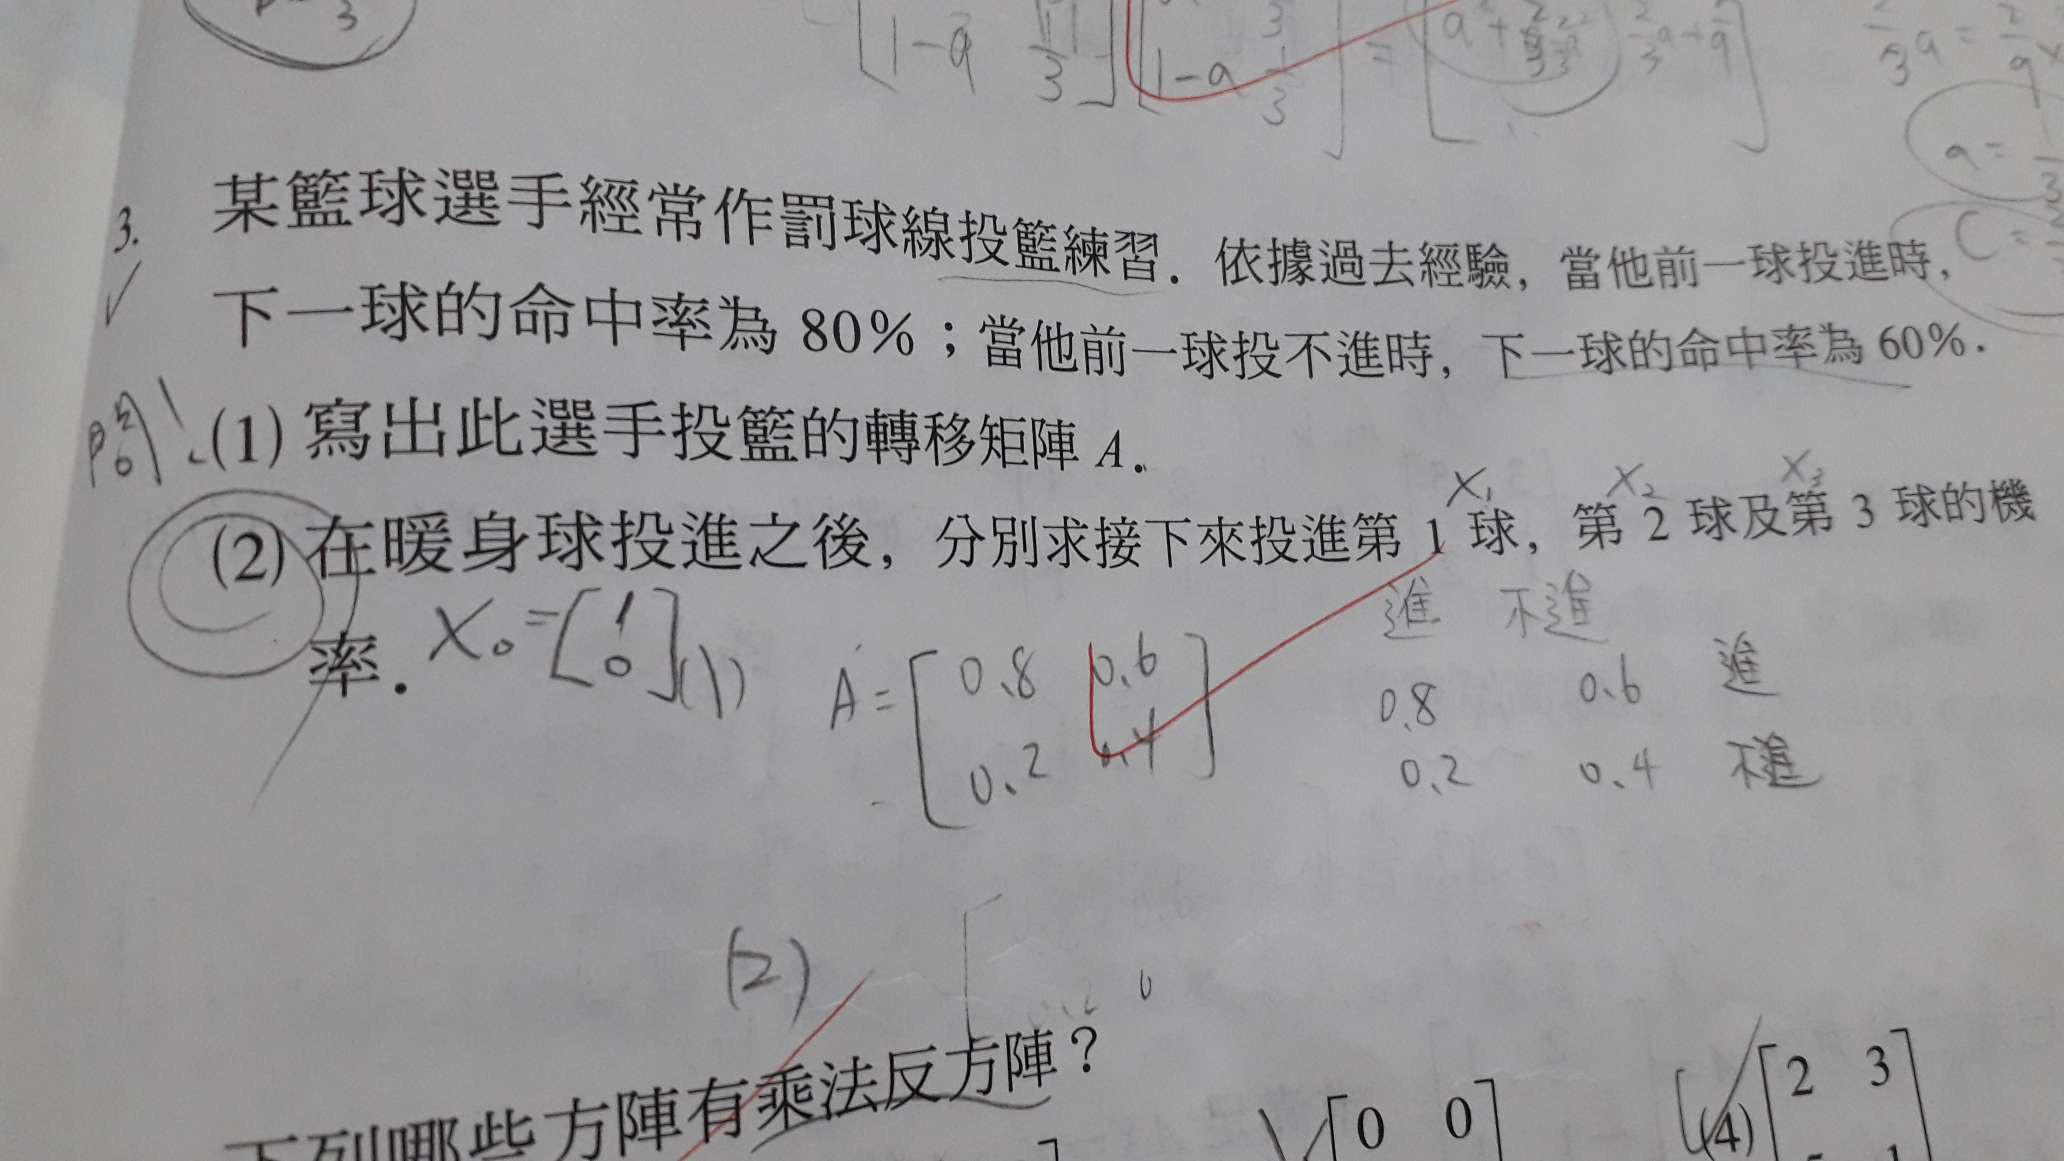 3
[1-a 1/3] [1-a 1/3] = [a²+ 2/3a+2/9] 2/3a = 2/9
a=
3. 某籃球選手經常作罰球線投籃練習. 依據過去經驗, 當他前一球投進時,
下一球的命中率為 80%；當他前一球投不進時, 下一球的命中率為 60%.
(1) 寫出此選手投籃的轉移矩陣 A.
X₁ X₂ X₃
(2) 在暖身球投進之後, 分別求接下來投進第 1 球, 第 2 球及第 3 球的機
率. X₀=[1 0] (1) A=[0.8 0.6 0.2 0.4]
進 不進
0.8 0.6 進
0.2 0.4 不進
(2)
下列哪些方陣有乘法反方陣？
[0 0] (4) [2 3